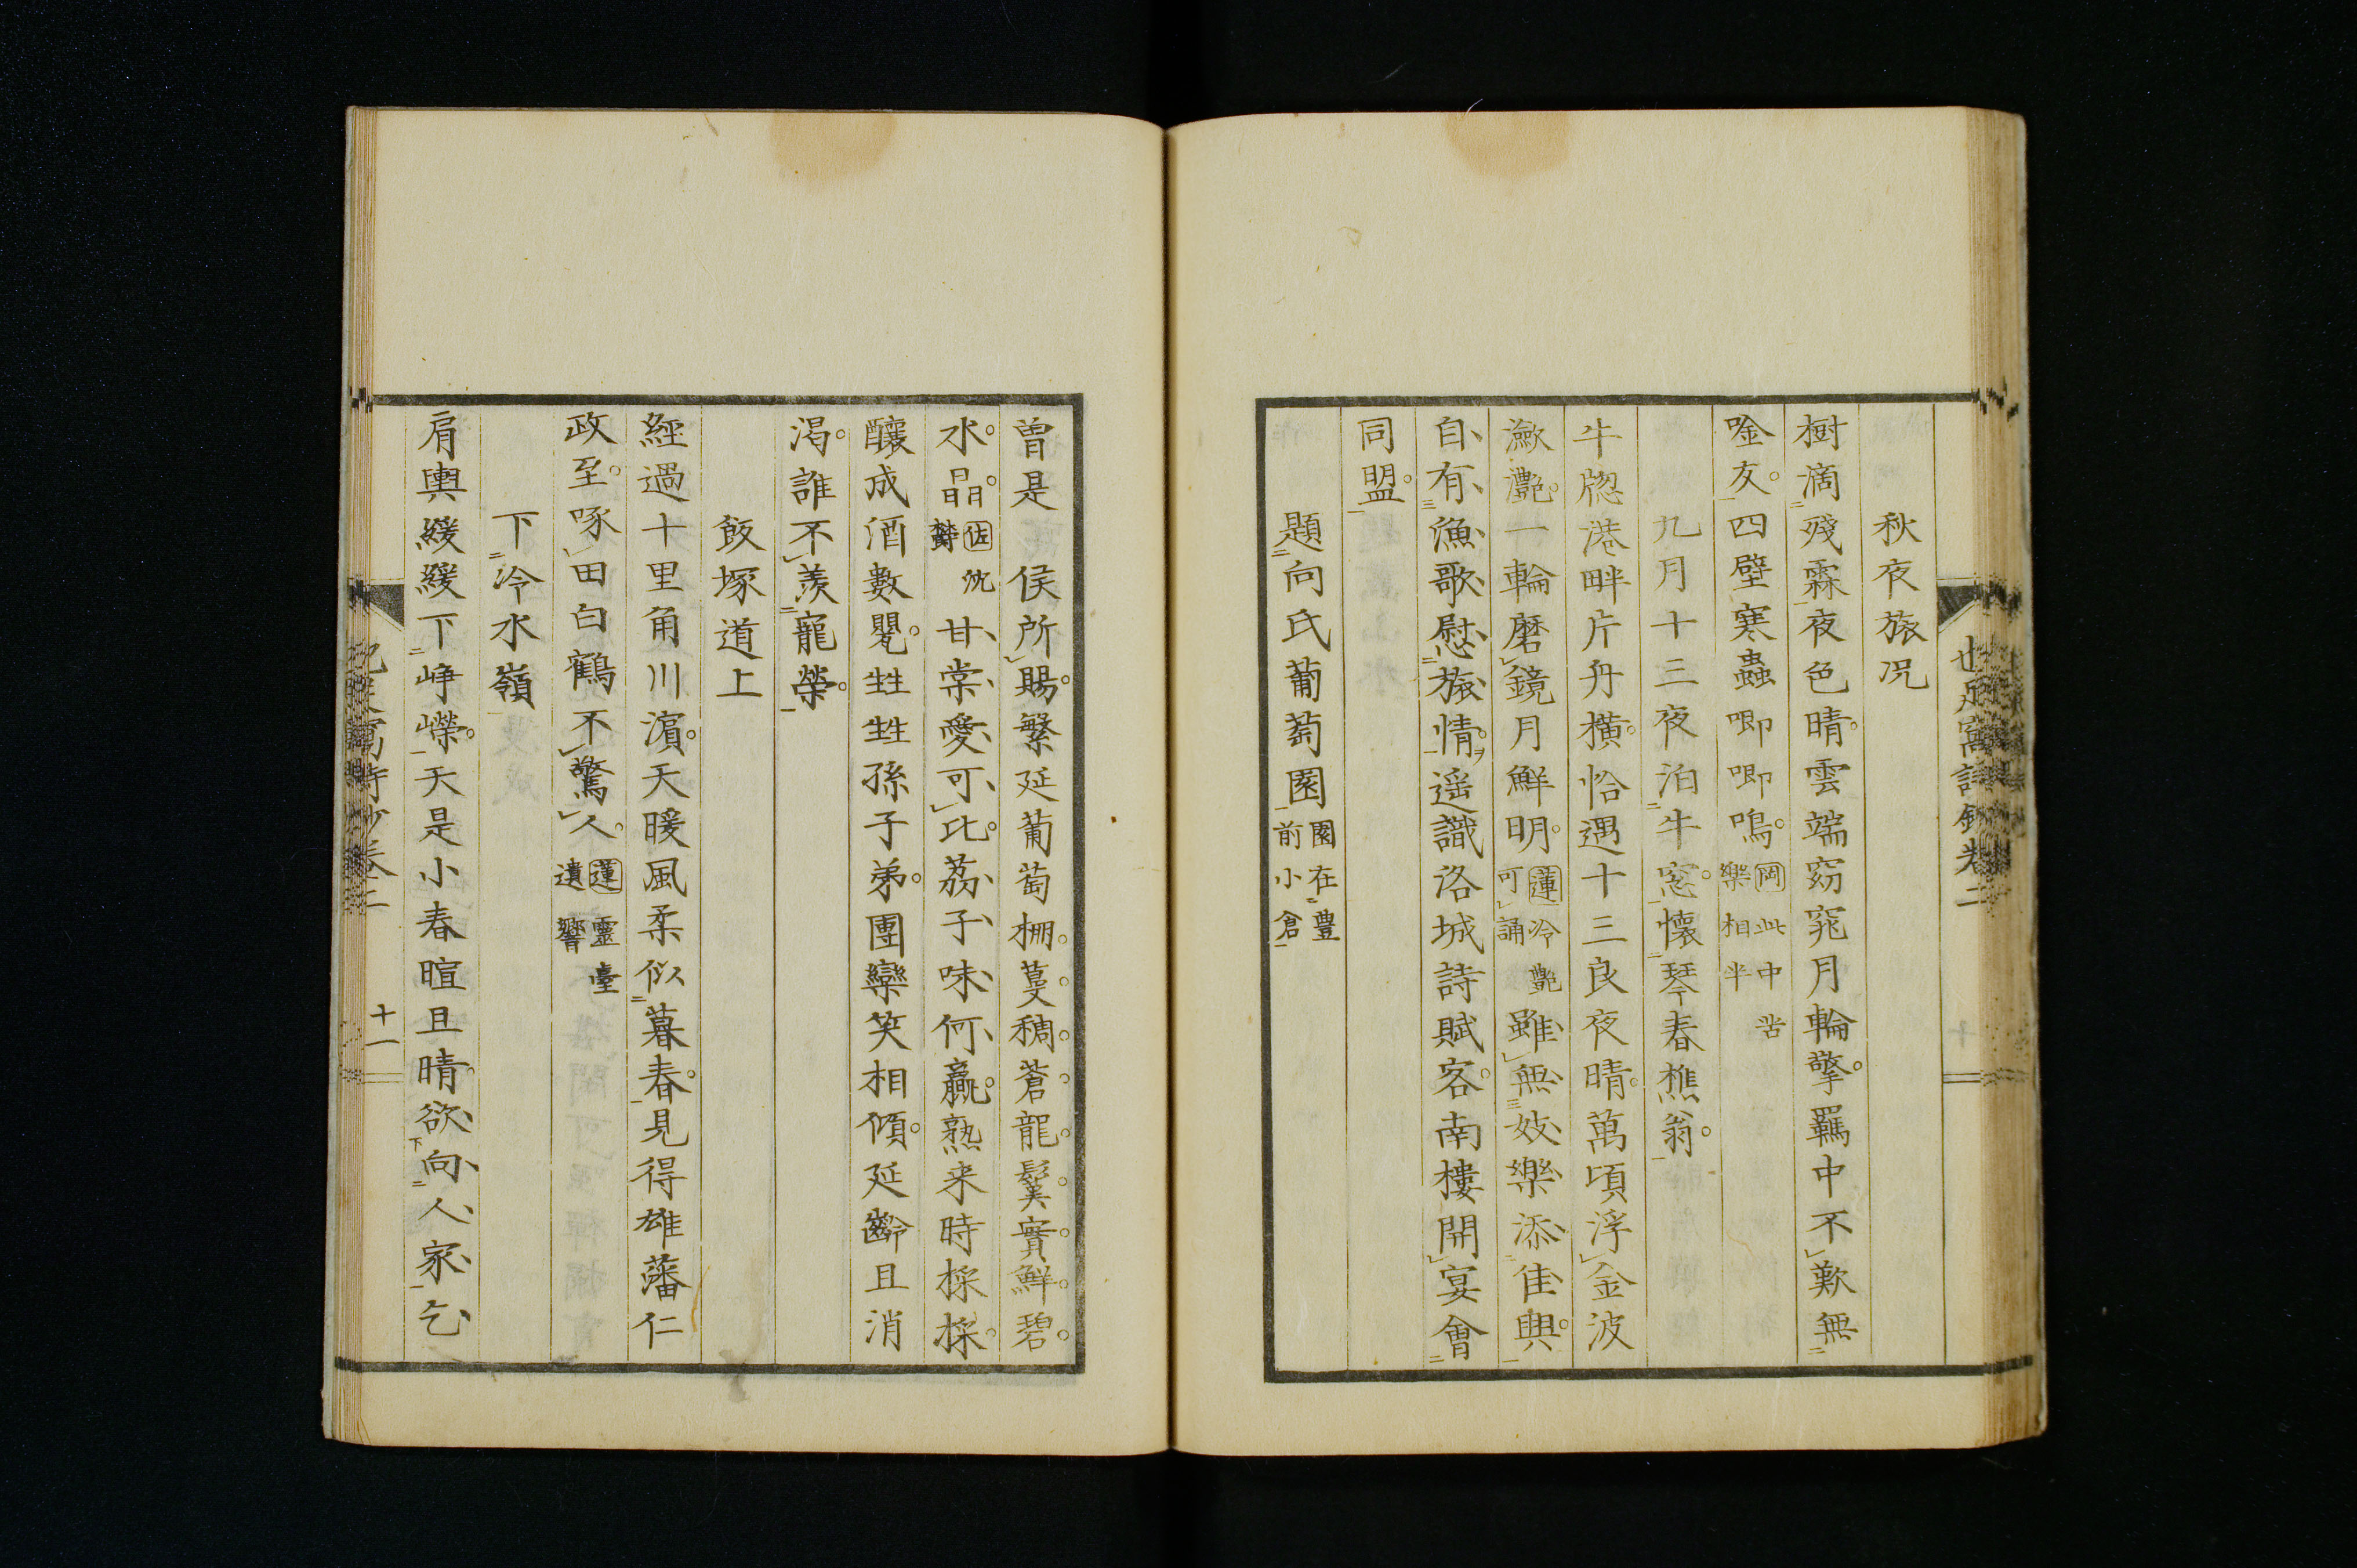 秋夜旅况
樹滴殘霖夜色晴雲端窈窕月輪擎羈中不歎無
唫友四壁寒蟲唧唧鳴岡此中苦樂相半
九月十三夜泊牛窓懷琴春樵翁
牛牕港畔片舟横恰遇十三良夜晴萬頃浮金波
瀲灔一輪磨鏡月鮮明蓮冷艶可誦雖無妓樂添佳興
自有漁歌慰旅情遥識洛城詩賦客南樓開宴會
同盟
題向氏葡萄園園在豊前小倉
曽是侯所賜繁延葡萄棚蔓稠蒼龍鬚實鮮碧
水晶佐沈甘棠愛可比荔子味何贏熟来時採採
釀成酒數甖甡甡孫子弟團欒笑相傾延齡且消
渇誰不羨寵榮
飯塚道上
經過十里角川濵天暖風柔似暮春見得雄藩仁
政至啄田白鶴不驚人蓮靈臺遺響
下冷水嶺
肩輿緩緩下崢嶸天是小春暄且晴欲向人家乞
十一